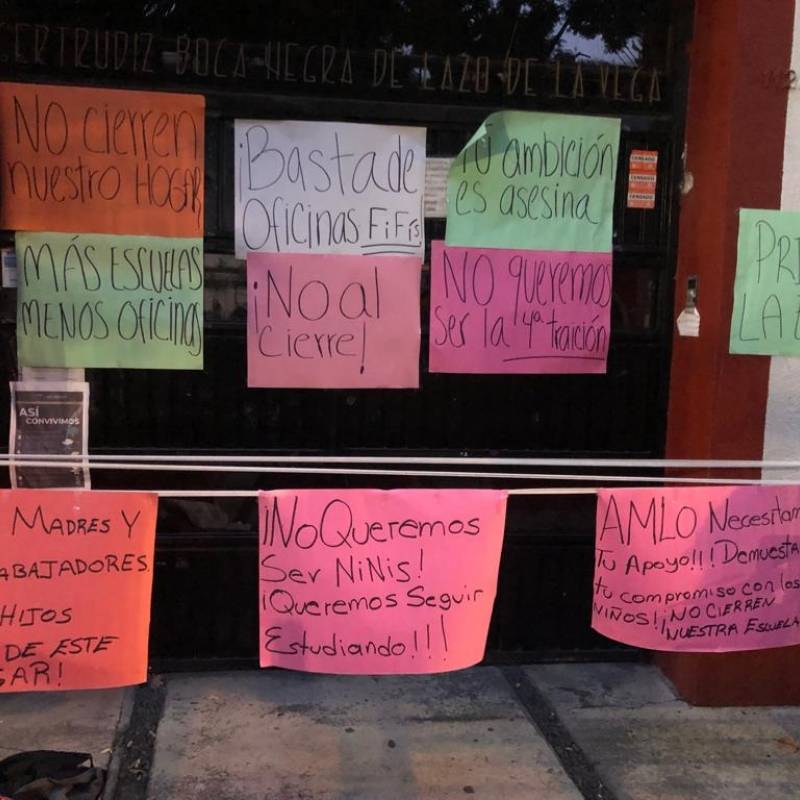 GERTRUDIZ BOCA NEGRA DE LAZO DE LA VEGA
NO cierren
nuestro HOGAR
¡Basta de
Oficinas FiFís
TU ambición
es asesina
CENSADO
CENSADO
CENSADO
MÁS ESCUELAS
MENOS OficinaS
¡No al
cierre!
NO queremos
SER la 4ª traición
PRI
LA E
ASÍ
CONVIVIMOS
MADRES Y
ABAJADORES
HIJOS
DE ESTE
GAR!
¡No Queremos
Ser NiNis!
¡Queremos Seguir
Estudiando!!!
AMLO Necesitam
Tu Apoyo!!! Demuesta
tu compromiso con los
NIÑOS! ¡NO CIERREN
NUESTRA ESCUELA